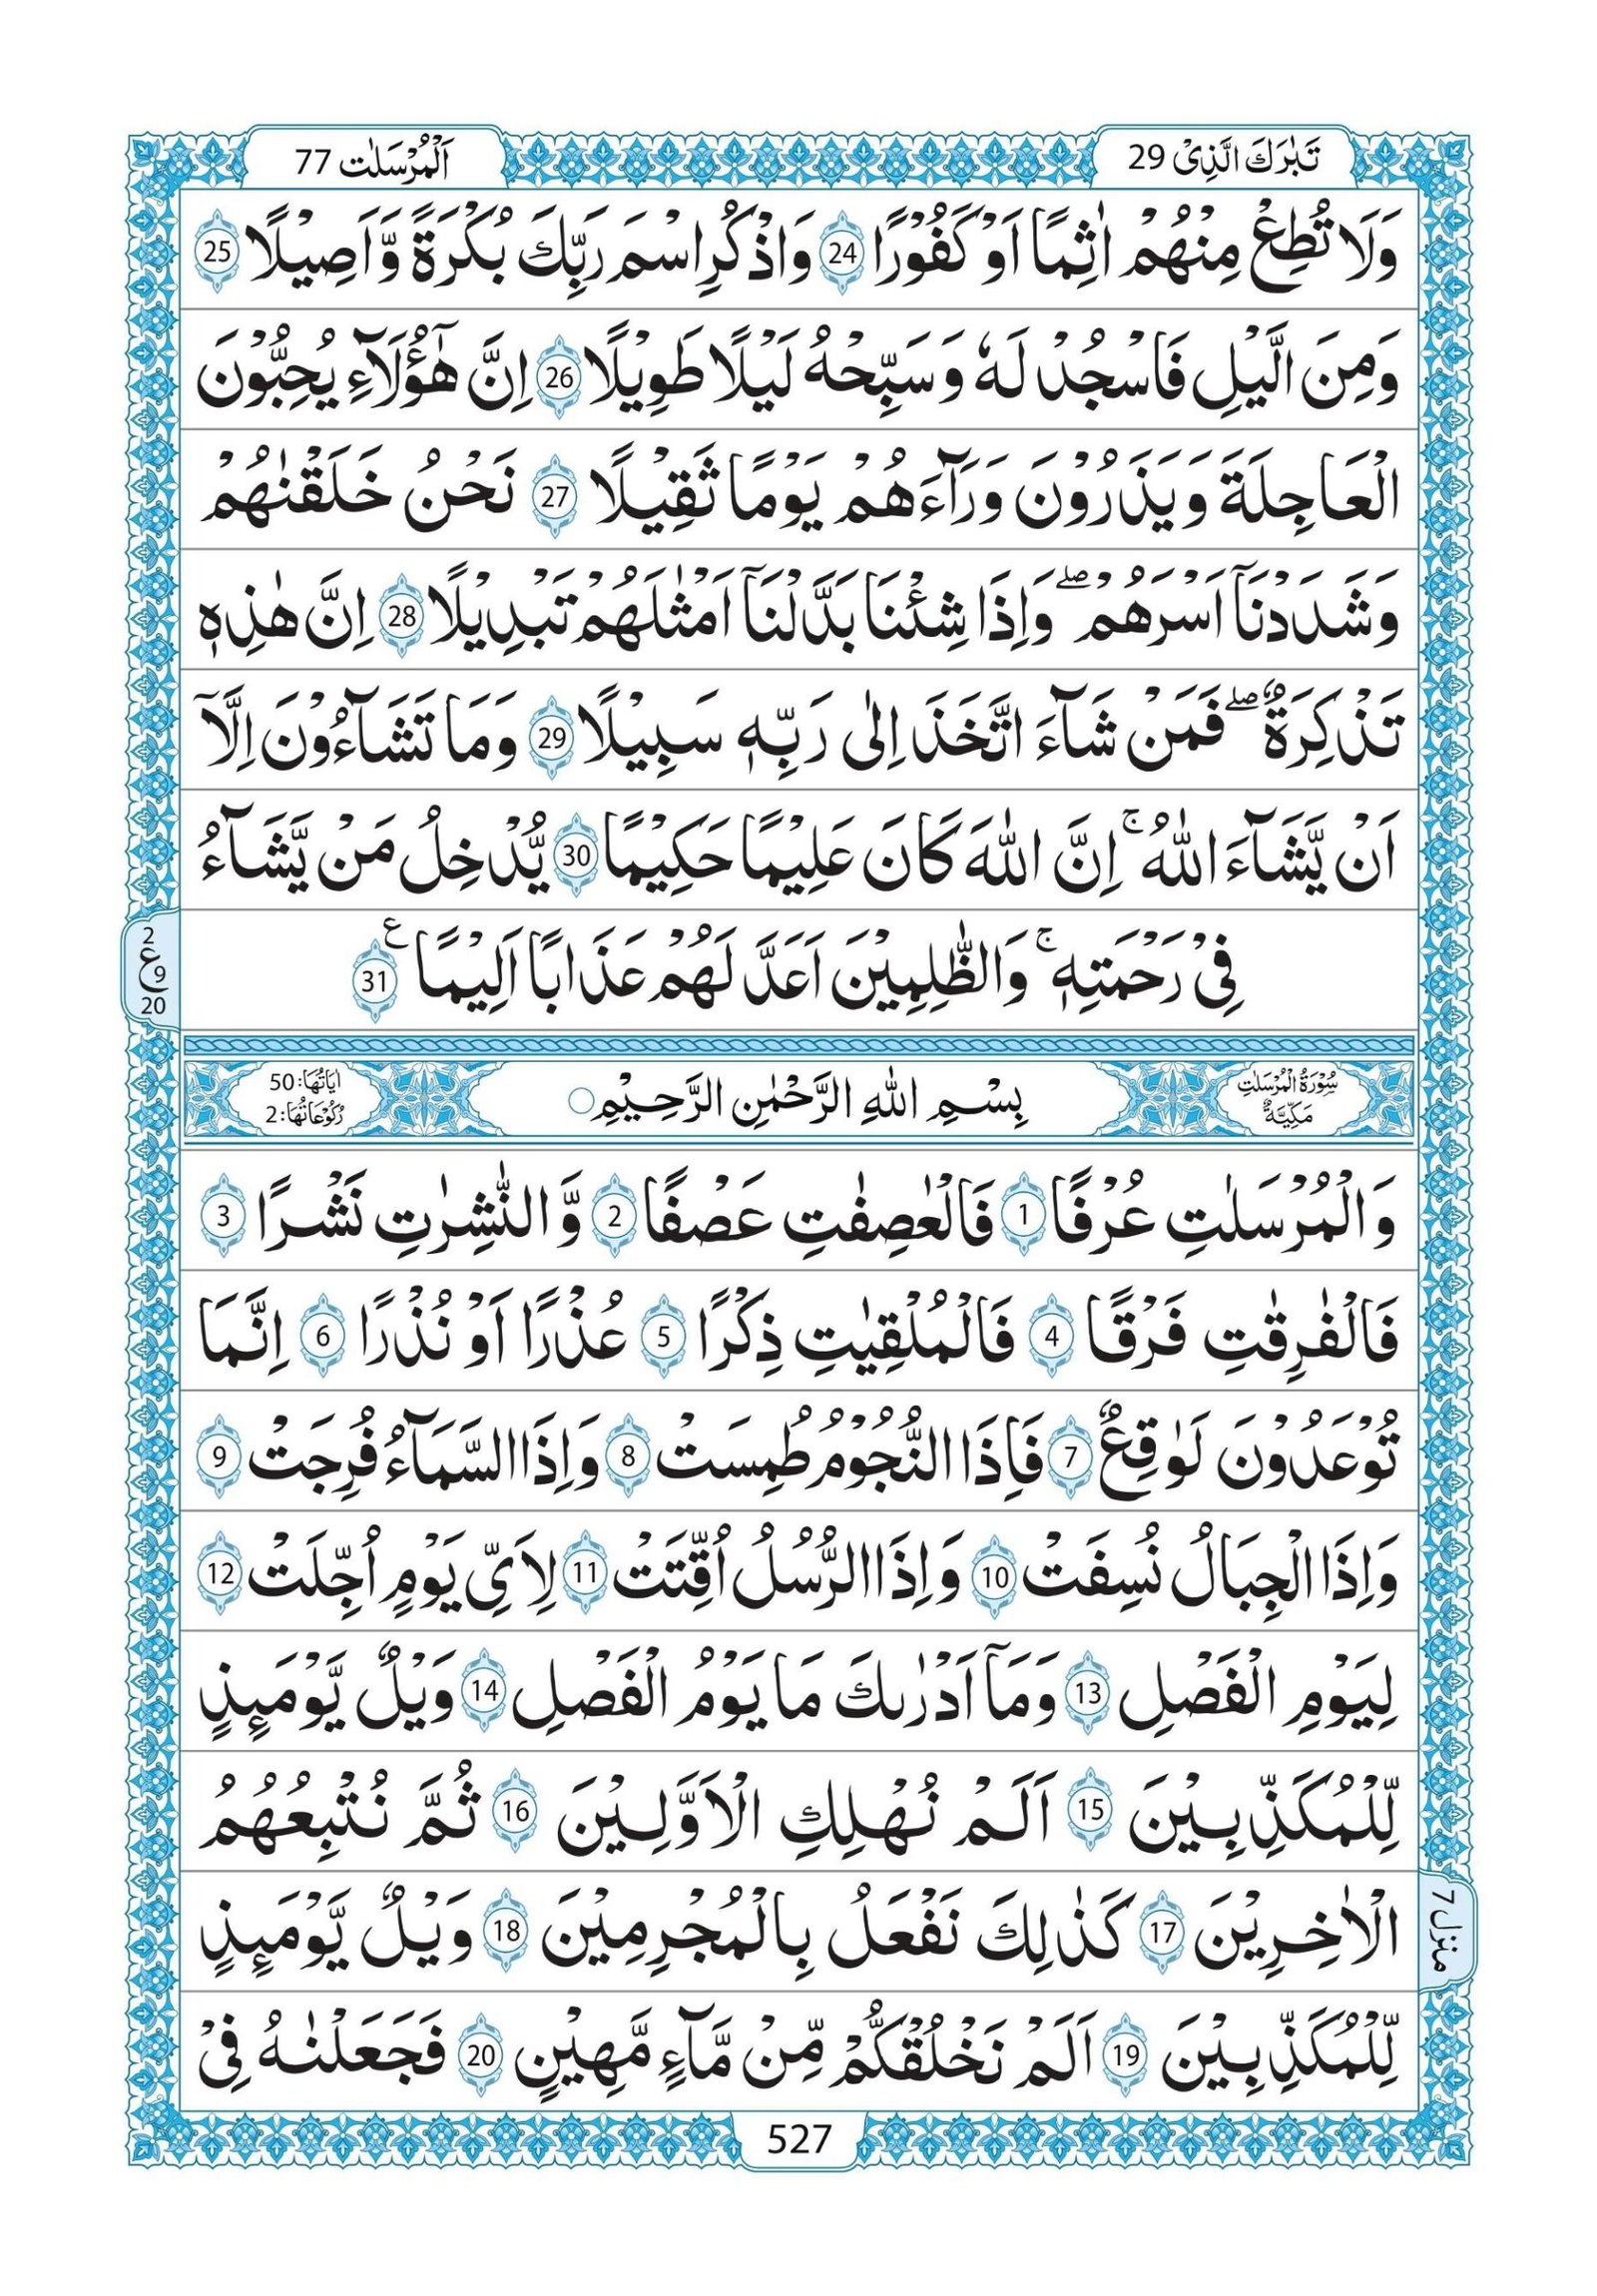 تَبٰرَكَ الَّذِیْ 29
اَلْمُرْسَلٰت 77
وَلَا تُطِعْ مِنْهُمْ اٰثِمًا اَوْ كَفُوْرًا 24 وَاذْكُرِ اسْمَ رَبِّكَ بُكْرَةً وَّاَصِیْلًا 25
وَمِنَ الَّیْلِ فَاسْجُدْ لَهٗ وَسَبِّحْهُ لَیْلًا طَوِیْلًا 26 اِنَّ هٰۤؤُلَآءِ یُحِبُّوْنَ
الْعَاجِلَةَ وَیَذَرُوْنَ وَرَآءَهُمْ یَوْمًا ثَقِیْلًا 27 نَحْنُ خَلَقْنٰهُمْ
وَشَدَدْنَاۤ اَسْرَهُمْ ۖ وَاِذَا شِئْنَا بَدَّلْنَاۤ اَمْثٰلَهُمْ تَبْدِیْلًا 28 اِنَّ هٰذِهٖ
تَذْكِرَةٌ ۖ فَمَنْ شَآءَ اتَّخَذَ اِلٰی رَبِّهٖ سَبِیْلًا 29 وَمَا تَشَآءُوْنَ اِلَّاۤ
اَنْ یَّشَآءَ اللّٰهُ ۚ اِنَّ اللّٰهَ كَانَ عَلِیْمًا حَكِیْمًا 30 یُّدْخِلُ مَنْ یَّشَآءُ
فِیْ رَحْمَتِهٖ ۚ وَالظّٰلِمِیْنَ اَعَدَّ لَهُمْ عَذَابًا اَلِیْمًا ع 31
2
ع 9
20
سُوْرَةُ الْمُرْسَلٰتِ
مَكِّیَّةٌ
بِسْمِ اللّٰهِ الرَّحْمٰنِ الرَّحِیْمِ ○
اٰیَاتُهَا: 50
رُكُوْعَاتُهَا: 2
وَالْمُرْسَلٰتِ عُرْفًا 1 فَالْعٰصِفٰتِ عَصْفًا 2 وَّالنّٰشِرٰتِ نَشْرًا 3
فَالْفٰرِقٰتِ فَرْقًا 4 فَالْمُلْقِیٰتِ ذِكْرًا 5 عُذْرًا اَوْ نُذْرًا 6 اِنَّمَا
تُوْعَدُوْنَ لَوٰقِعٌ 7 فَاِذَا النُّجُوْمُ طُمِسَتْ 8 وَاِذَا السَّمَآءُ فُرِجَتْ 9
وَاِذَا الْجِبَالُ نُسِفَتْ 10 وَاِذَا الرُّسُلُ اُقِّتَتْ 11 لِاَیِّ یَوْمٍ اُجِّلَتْ 12
لِیَوْمِ الْفَصْلِ 13 وَمَاۤ اَدْرٰىكَ مَا یَوْمُ الْفَصْلِ 14 وَیْلٌ یَّوْمَىِٕذٍ
لِّلْمُكَذِّبِیْنَ 15 اَلَمْ نُهْلِكِ الْاَوَّلِیْنَ 16 ثُمَّ نُتْبِعُهُمُ
الْاٰخِرِیْنَ 17 كَذٰلِكَ نَفْعَلُ بِالْمُجْرِمِیْنَ 18 وَیْلٌ یَّوْمَىِٕذٍ
منزل 7
لِّلْمُكَذِّبِیْنَ 19 اَلَمْ نَخْلُقْكُّمْ مِّنْ مَّآءٍ مَّهِیْنٍ 20 فَجَعَلْنٰهُ فِیْ
527